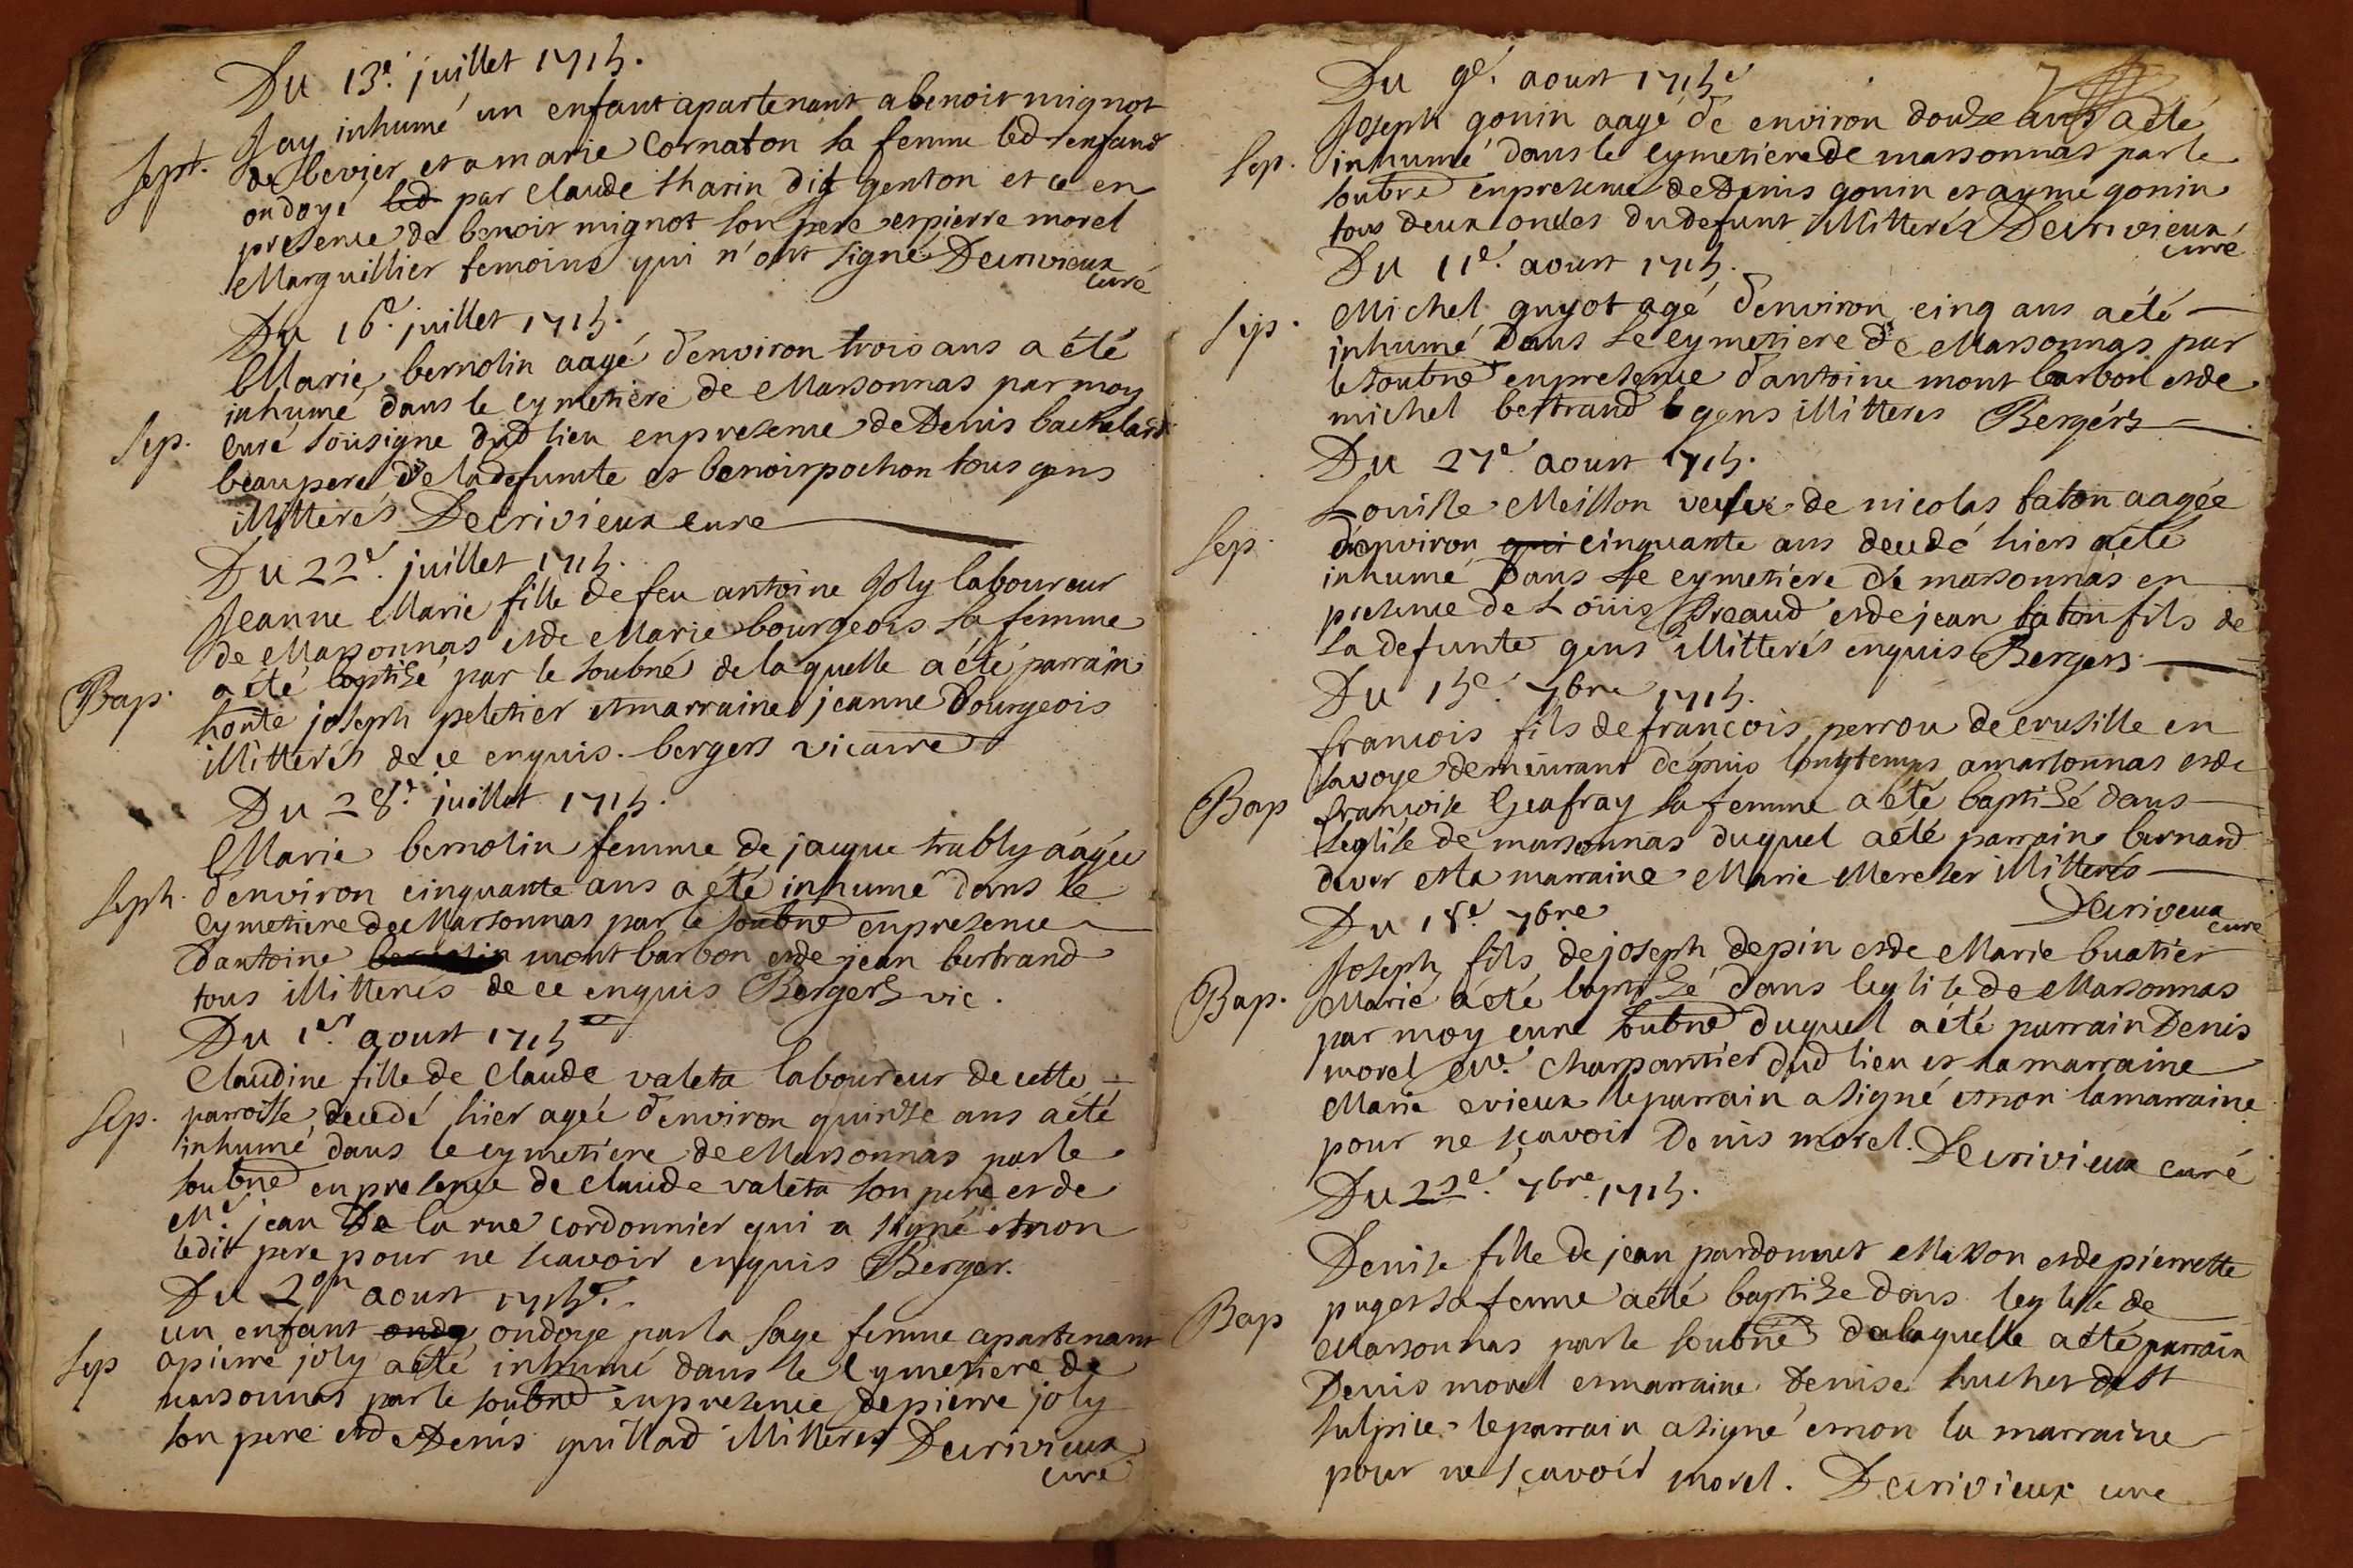 Du 13e. juillet 1715.
Sept. Jay inhumé un enfant apartenant a benoit mignot
de bevier et a marie Cornaton sa femme led. enfant
ondoyé led par Claude tharin dit genton et ce en
presence de benoit mignot son pere et pierre morel
Marguillier temoins qui n'ont signé Decrivieux
curé
Du 16e. juillet 1715.
Marie bernolin aagé d'environ trois ans a été
inhumé dans le cymetiere de Marsonnas par moy
Sep. curé sousigne dud lieu en presence de Denis bachelard
beaupere de la defunte et benoit pochon tous gens
illitterés Decrivieux cure
Du 22e. juillet 1715.
Jeanne Marie fille de feu antoine Joly laboureur
de Marsonnas et de Marie bourgeois sa femme
Bap. a été baptisé par le soubné de laquelle a été parrain
honte joseph peletier et marraine jeanne bourgeois
illitterés de ce enquis. bergers vicaire
Du 28e. juillet 1715.
Marie bernolin femme de jacque trably aagée
Seph. d'environ cinquante ans a été inhumé dans le
cymetiere de Marsonnas par le soubné en presence
d'antoine montbarbon et de jean bertrand
tous illitterés de ce enquis Bergers vic.
Du 1er. aoust 1715
Claudine fille de Claude valeta laboureur de cette
Sep. parroisse decedé hier agée d'environ quinse ans a été
inhumé dans le cymetiere de Marsonnas par le
soubné en presence de Claude valeta son pere et de
Me. jean De la rue cordonnier qui a signé et non
ledit pere pour ne scavoir enquis Berger.
Du 2on aoust 1715e.
un enfant ondo ondoye par la sage femme apartenant
Sep a pierre joly a été inhumé dans le cymetiere de
marsonnas par le soubné en presence de pierre joly
son pere et de Denis guillad illitterés Decrivieux
curé
Du 9e. aoust 1715e
Joseph gonin aagé de environ douze ans a été
Sep. inhumé dans le cymetiere de marsonnas par le
soubné en presence de Denis gonin et aymé gonin
tous deux oncles du defunt illitterés Decrivieux
curé
Du 11e. aoust 1715.
Michel guyot agé d'environ cinq ans a été
Sep. inhumé Dans le cymetiere de Marsonnas par
le soubné en presence d'antoine montbarbon et de
michel bertrand gens illitteres Bergers
Du 27e. aoust 1715.
Louisse Meillon veufve de nicolas faton aagée
Sep. d'environ qui cinquante ans decedé hiers a été
inhumé Dans le cymetiere de marsonnas en
presence de Loüis Preaud et de jean faton fils de
la defunte gens illitterés enquis Bergers
Du 15e. 7bre 1715.
francois fils de francois perrou de crusille en
savoye demeurant depuis longtemps a marsonnas et de
Bap francoise Geafray sa femme a été baptisé dans
leglise de marsonnas duquel a été parrain bernand
dever et la marraine Marie Mercier illitterés
Decriveux
cure
Du 18e. 7bre
Joseph fils de joseph depin et de Marie buatier
Bap. Marié a été baptisé dans leglise de Marsonnas
par moy cure soubné duquel a été parrain Denis
morel charpantier dud lieu et la marraine
Marie crieux le parrain a signé et non la marraine
pour ne scavoir Denis morel. Decrivieux curé
Du 22e. 7bre. 1715.
Denise fille de jean pardonnet Masson et de pierrette
Bap puget sa femme a été baptise dans leglise de
Marsonnas par le soubné de laquelle a été parrain
Denis morel et marraine Denise huchet de St
Sulpice le parrain a signé et non la marraine
pour ne scavoir morel. Decrivieux cure